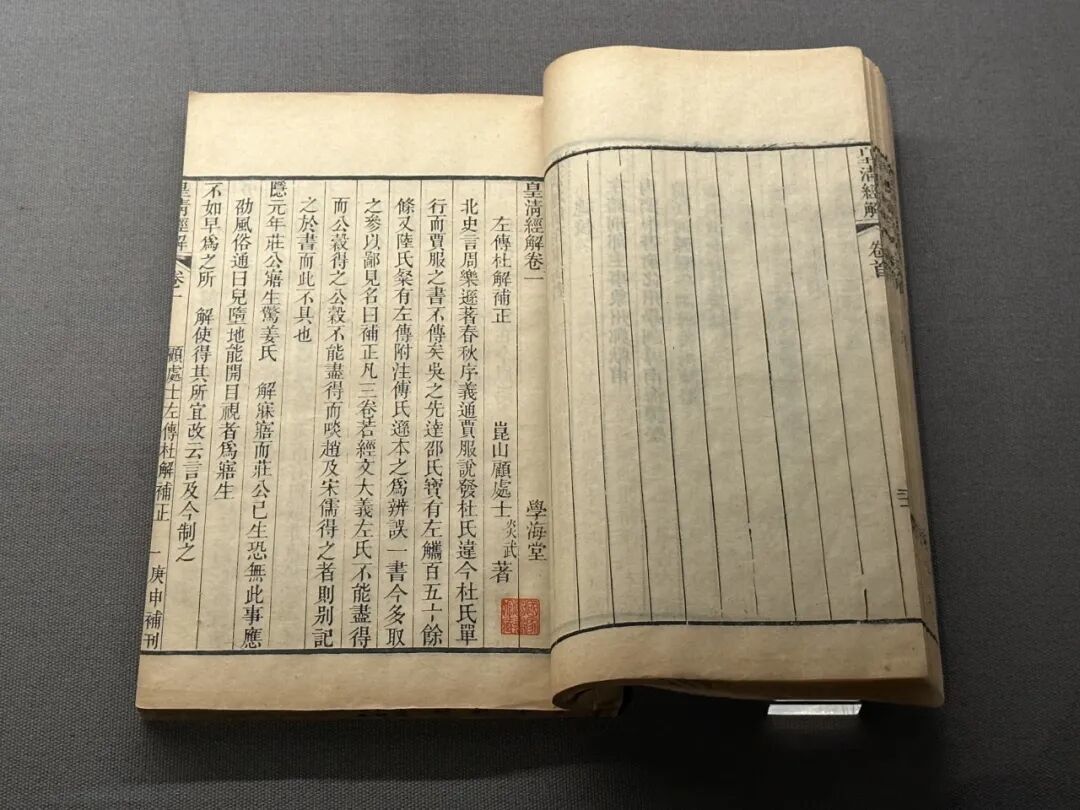 皇淸經解卷一　學海堂
左傳杜解補正　崑山顧處士炎武著
北史言周樂遜著春秋序義通賈服說發杜氏違今杜氏單
行而賈服之書不傳矣吳之先達邵氏寶有左觿百五十餘
條又陸氏粲有左傳附注傅氏遜本之爲辨誤一書今多取
之參以鄙見名曰補正凡三卷若經文大義左氏不能盡得
而公穀得之公穀不能盡得而啖趙及宋儒得之者則別記
之於書而此不具也
隱元年莊公寤生驚姜氏　解寐寤而莊公已生恐無此事應
劭風俗通曰兒墮地能開目視者爲寤生
不如早爲之所　解使得其所宜改云言及今制之
皇淸經解　卷一　顧處士左傳杜解補正　一　庚申補刊
皇淸經解　卷首